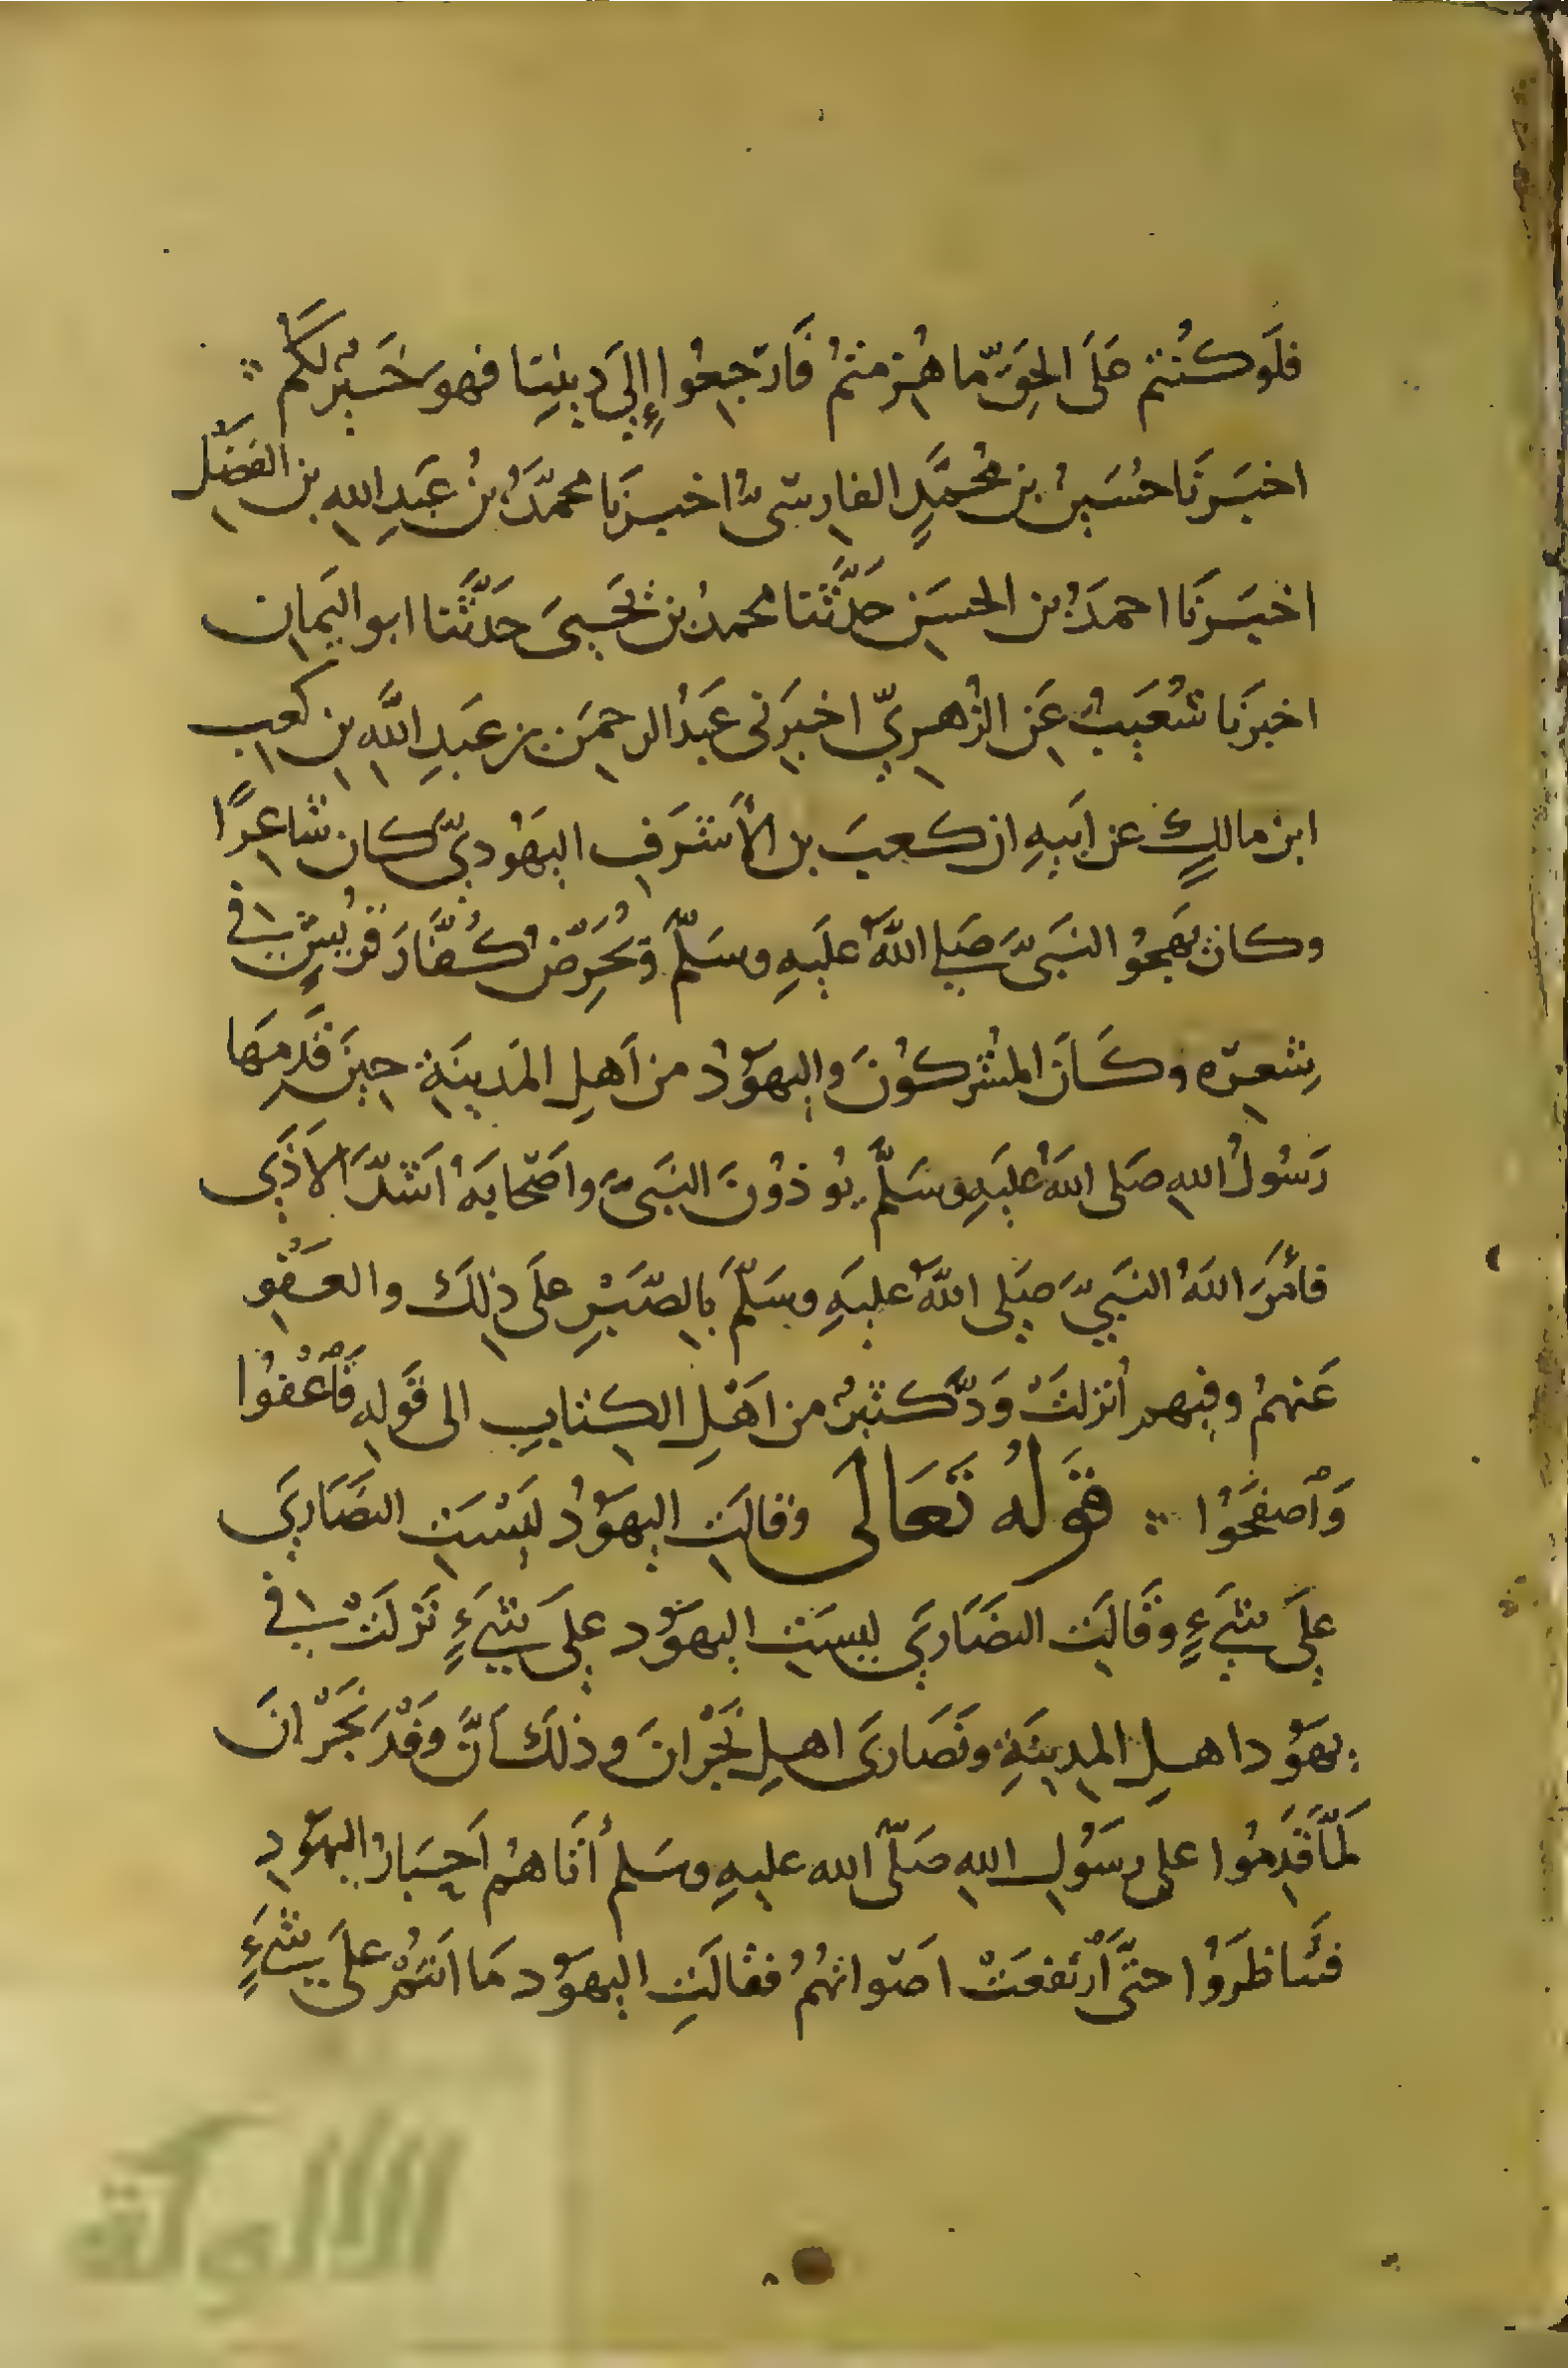 فلَو كُنتم عَلَى الحقِّ ما هُزمتمُ فَارجِعُوا إِلَى دِينِنا فهوَ خَيرٌ لكُم
اخبَرنَا حُسَينُ بن مُحمَّدٍ الفارِسىُّ اخبرنَا محمَّدُ بنُ عَبدِ اللهِ بن الفضل
اخبَرنَا احمدُ بن الحسَنِ حدَّثنا محمدُ بن يَحيىَ حَدَّثنا ابو اليَمانِ
اخبرَنا شُعَيبٌ عَنِ الزُّهرِيِّ اخبرَنى عَبدُ الرحمَن بن عبَدِ اللَّهِ بنِ كعبِ
ابن مالكٍ عن اَبيهِ ان كعبَ بن الأَشرَفِ اليَهُودِيَّ كان شَاعِرًا
وكان يَهجُو النبَىَّ صَلى اللَّهُ علَيهِ وسَلّمَ وَيُحَرِّضُ كُفَّارَ قُرَيشٍ فى
شِعرِه وكَانَ المُشركُونَ واليهوُدُ من اَهلِ المَدينَةِ حِينَ قَدِمَها
رَسُولُ اللهِ صَلى اللهُ علَيهِ وسَلَّمَ يُوذوُنَ النبَىَّ واصَحابَهُ اَشَدَّ الاَذَى
فأمَرَ اللهُ النبَيَّ صَلى اللَّهُ عليَهِ وسَلّمَ بِالصَّبرِ علَى ذلِكَ والعَفوِ
عَنهمُ وفيهم أُنزلتْ وَدَّ كثيرٌ من اَهْلِ الكِتابِ الى قَولِهِ فَاعْفُوا
وَاصْفَحُوا قَولُه تَعَالَى وَقالتِ اليهَوُدُ ليَسْتَِ النصَارَى
علَى شىءٍ وَقَالَتِ النصَارَى ليستِ اليهوُد علَى شىءٍ نَزلَتْ فى
يهوُد اهلِ المدِينَةِ ونَصَارَى اهلِ نَجْرانَ وذلكَ اَنَّ وَفْدَ نَجْرَانَ
لَمَّا قَدِمُوا على رسَوُلِ اللهِ صَلَّى الله عليهِ وسَلم أتَاهمُ اَحبَارُ اليهَوُدِ
فتَناظَرَوُا حتىَّ اَرْتَفعَتْ اصَواتهُمُ فقالَتِ اليهَوُد مَا انَتمُ علَىَ شىءٍ
الألوكة